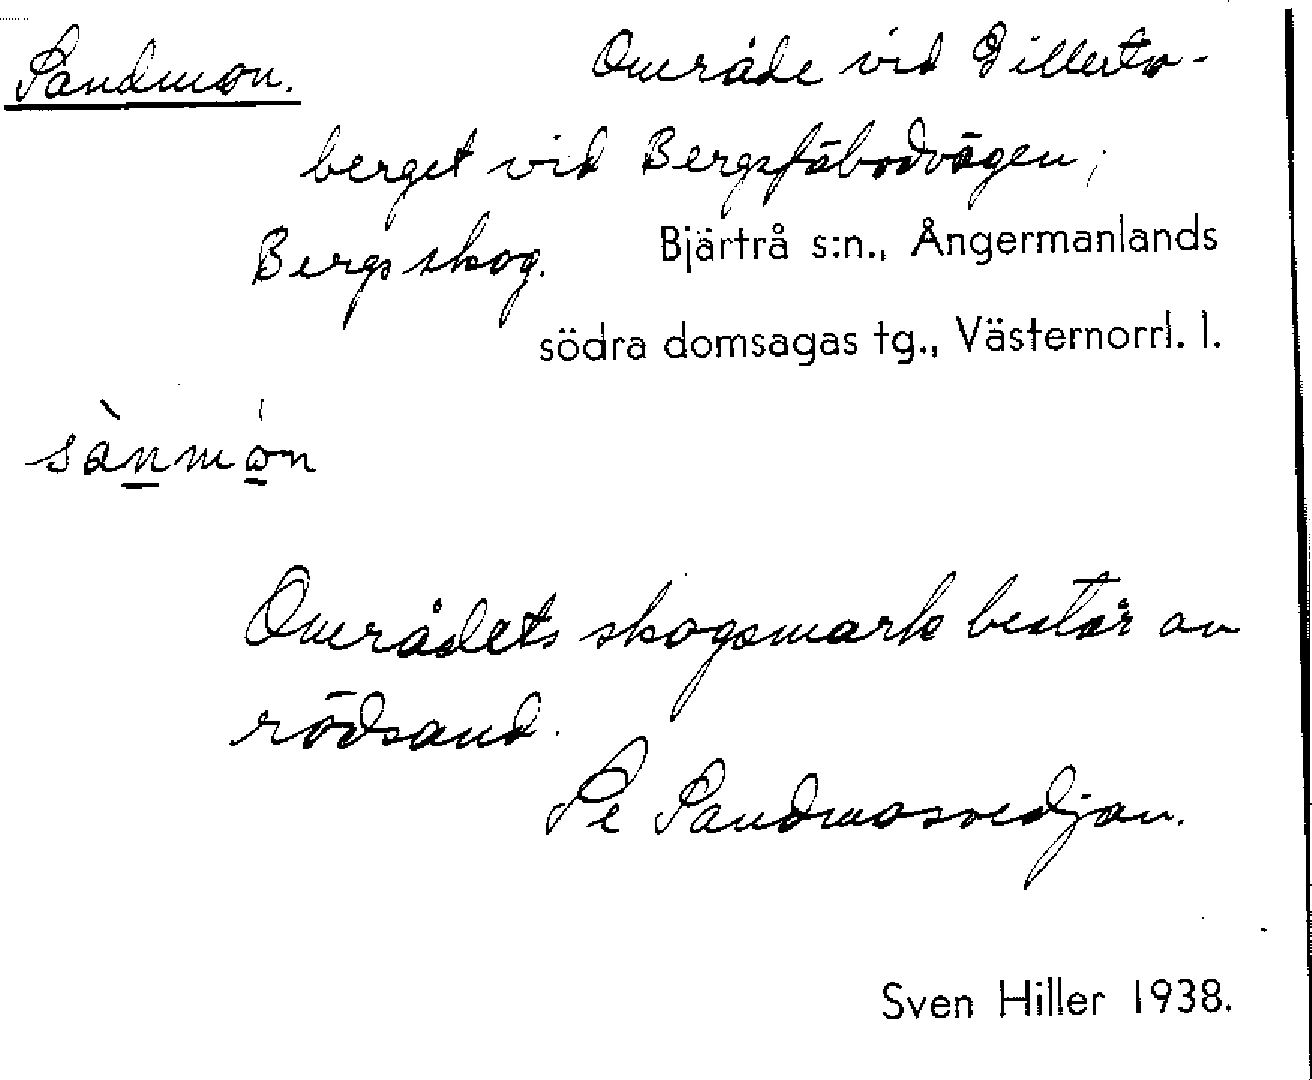 Sandmon. Område vid Gillersta-
berget vid Bergsfäbodvägen,
Bergs skog. Bjärtrå s:n., Ångermanlands
södra domsagas tg., Västernorrl. l.
sànmón
Områdets skogsmark består av
rödsand.
Se Sandmosvedjan.
Sven Hiller 1938.